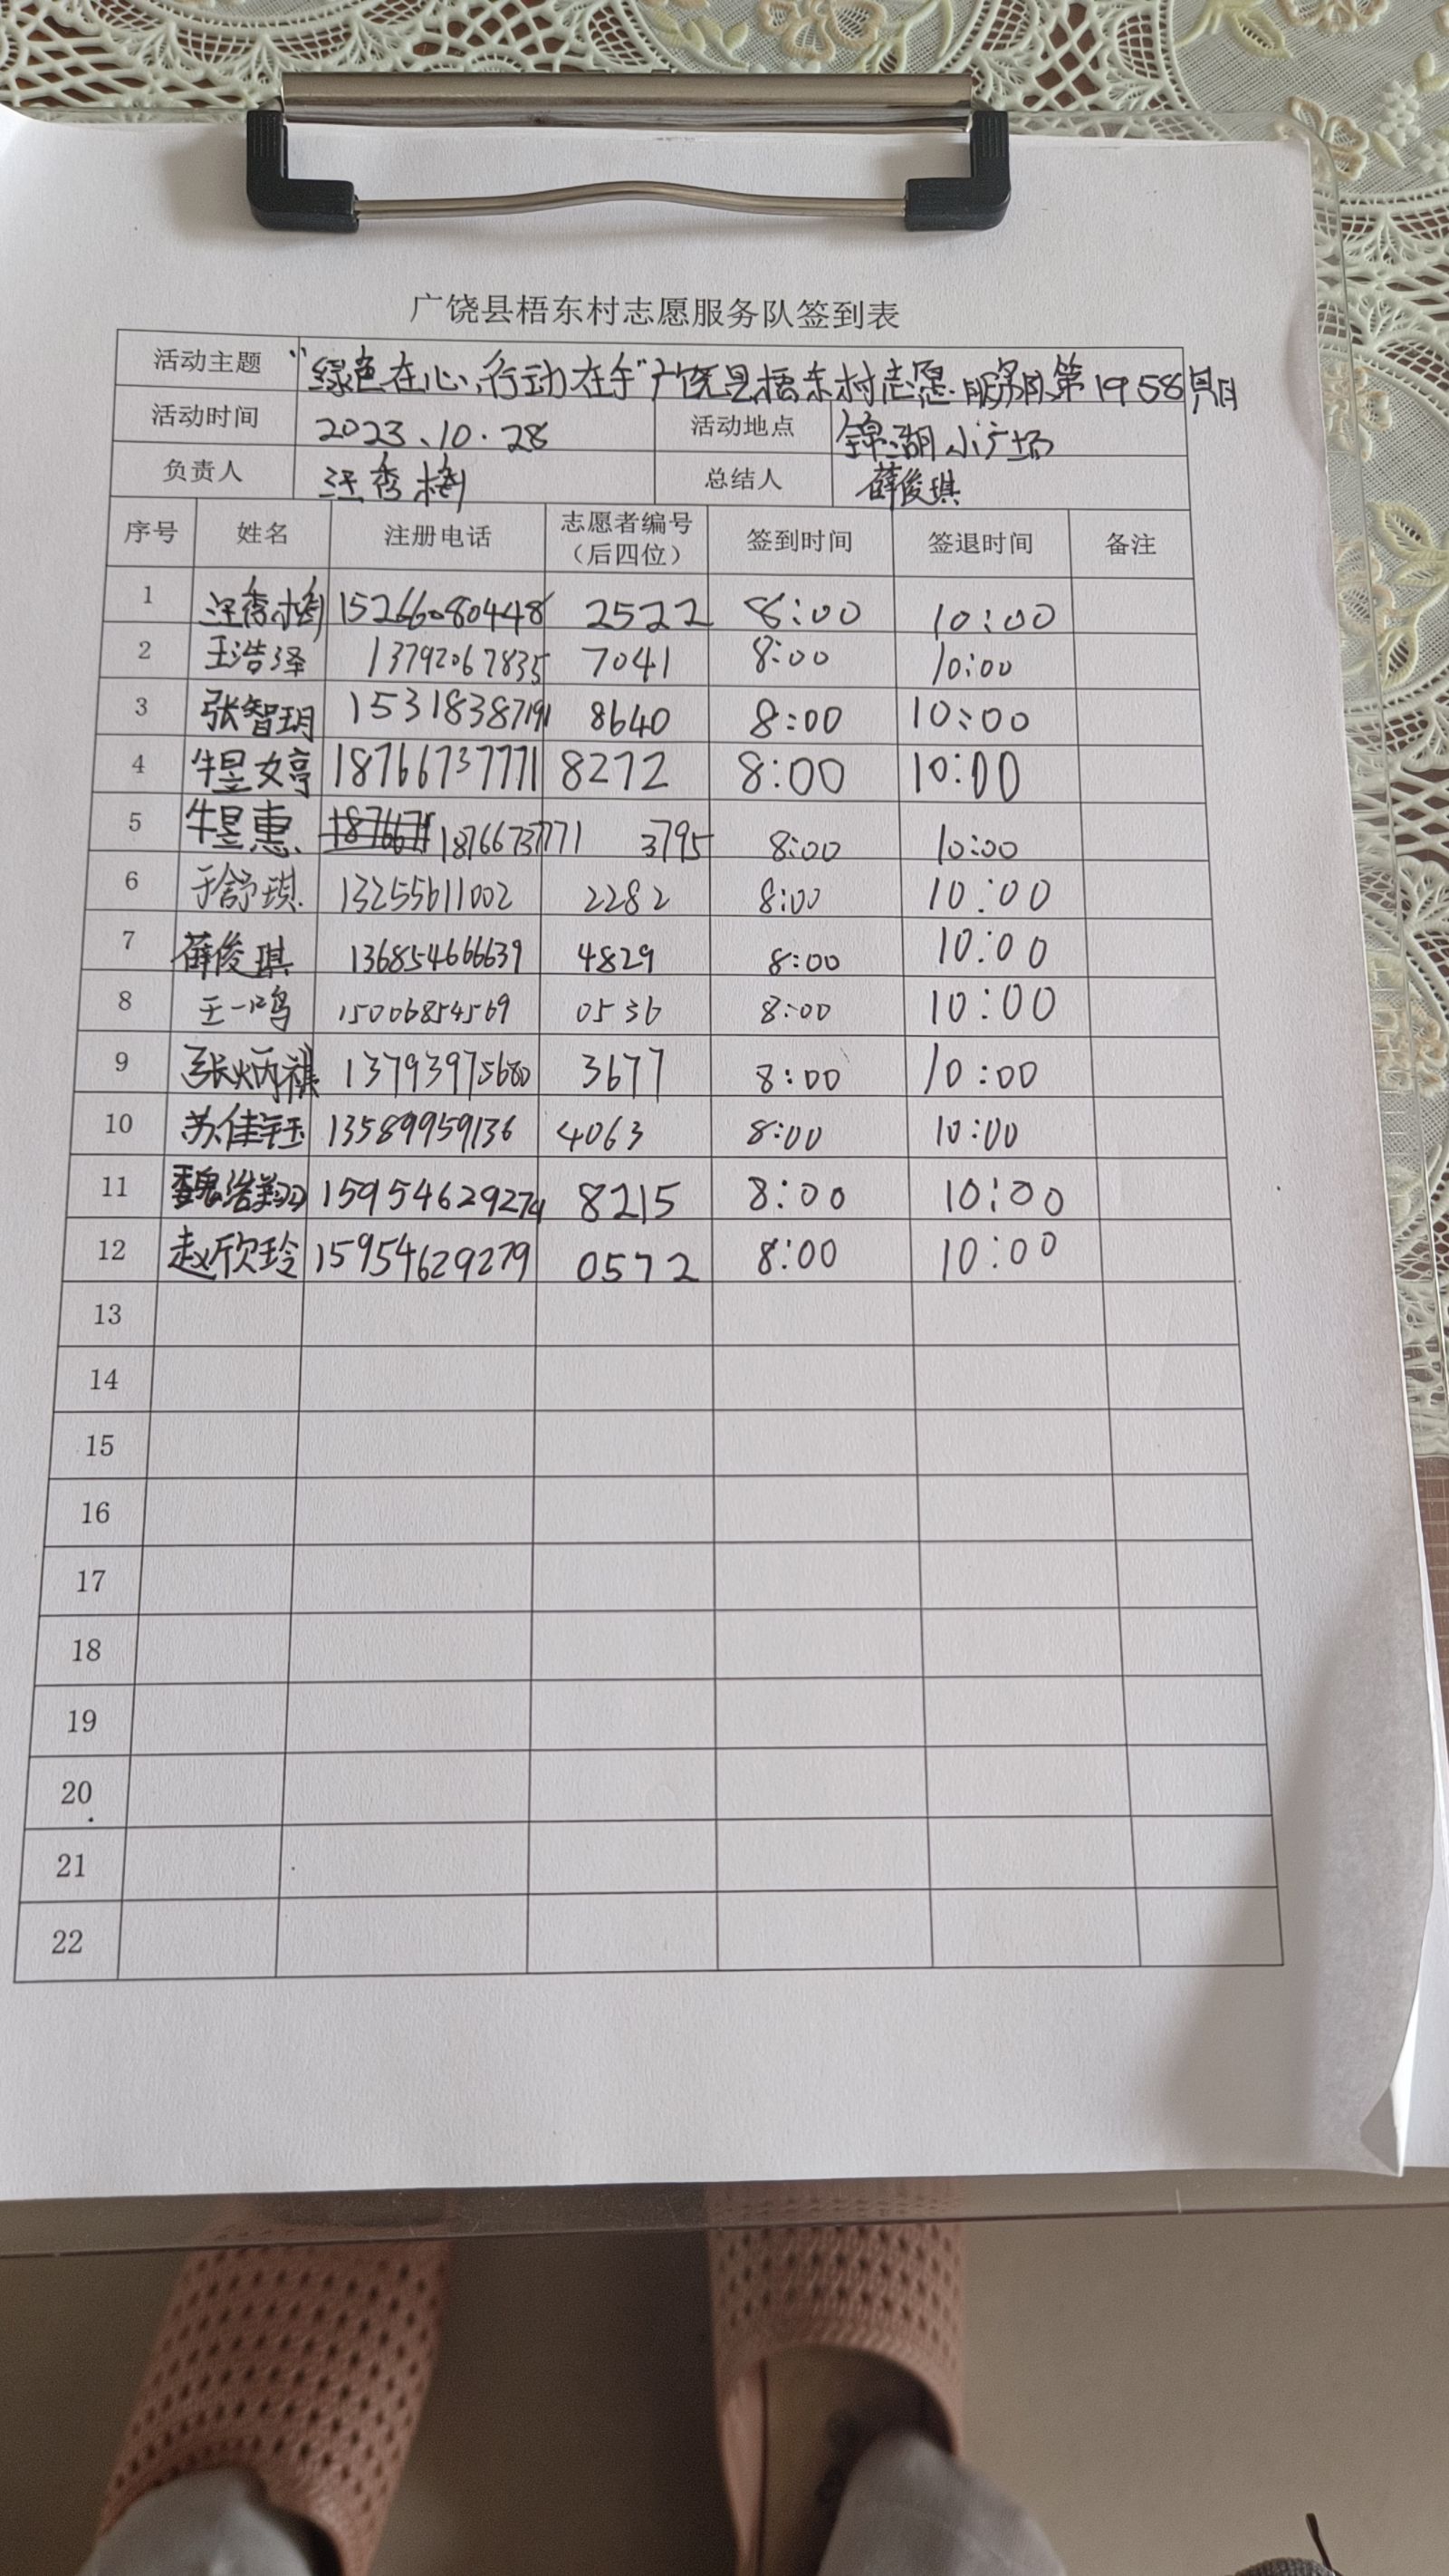 广饶县梧东村志愿服务队签到表
活动主题 “绿色在心、行动在手”广饶县梧东村志愿服务队第1958期
活动时间 2023.10.28 活动地点 锦湖小广场
负责人 汪秀梅 总结人 薛俊琪
序号 姓名 注册电话 志愿者编号（后四位） 签到时间 签退时间 备注
1 汪秀梅 15266080448 2522 8:00 10:00
2 王浩泽 13792067835 7041 8:00 10:00
3 张智玥 15318387191 8640 8:00 10:00
4 牛昱婷 18766737771 8272 8:00 10:00
5 牛昱惠 18766737771 3795 8:00 10:00
6 于舒琪 13255611002 2282 8:00 10:00
7 薛俊琪 136854666639 4829 8:00 10:00
8 王一鸣 15006854569 0536 8:00 10:00
9 张炳祺 13793975680 3677 8:00 10:00
10 苏佳钰 13589959136 4063 8:00 10:00
11 魏浩翔 15954629274 8215 8:00 10:00
12 赵欣玲 15954629279 0572 8:00 10:00
13
14
15
16
17
18
19
20
21
22